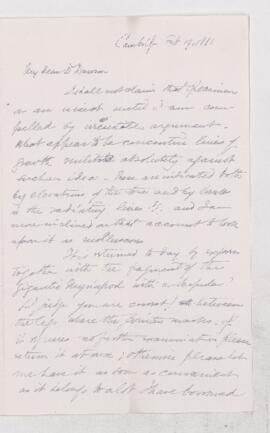 Cambridge Feb 19, 1881
My dear Dr Dawson
I shall not claim that specimen
as an insect until I am com-
pelled by irresistible argument.
What appear to be concentric lines of
growth militate absolutely against
such an idea. These are indicated both
by elevations of the and by
in the radiating lines & I am
more inclined on that account to look
upon it as molluscan.
It is returned to day by express
together with the fragment of the
gigantic Myriapod with a
(I judge you are correct) between
the legs where the pointer marks. If
it requires no further examination please
return it at once; otherwise please let
me have it as soon as convenient
as it belongs to a lot I have borrowed